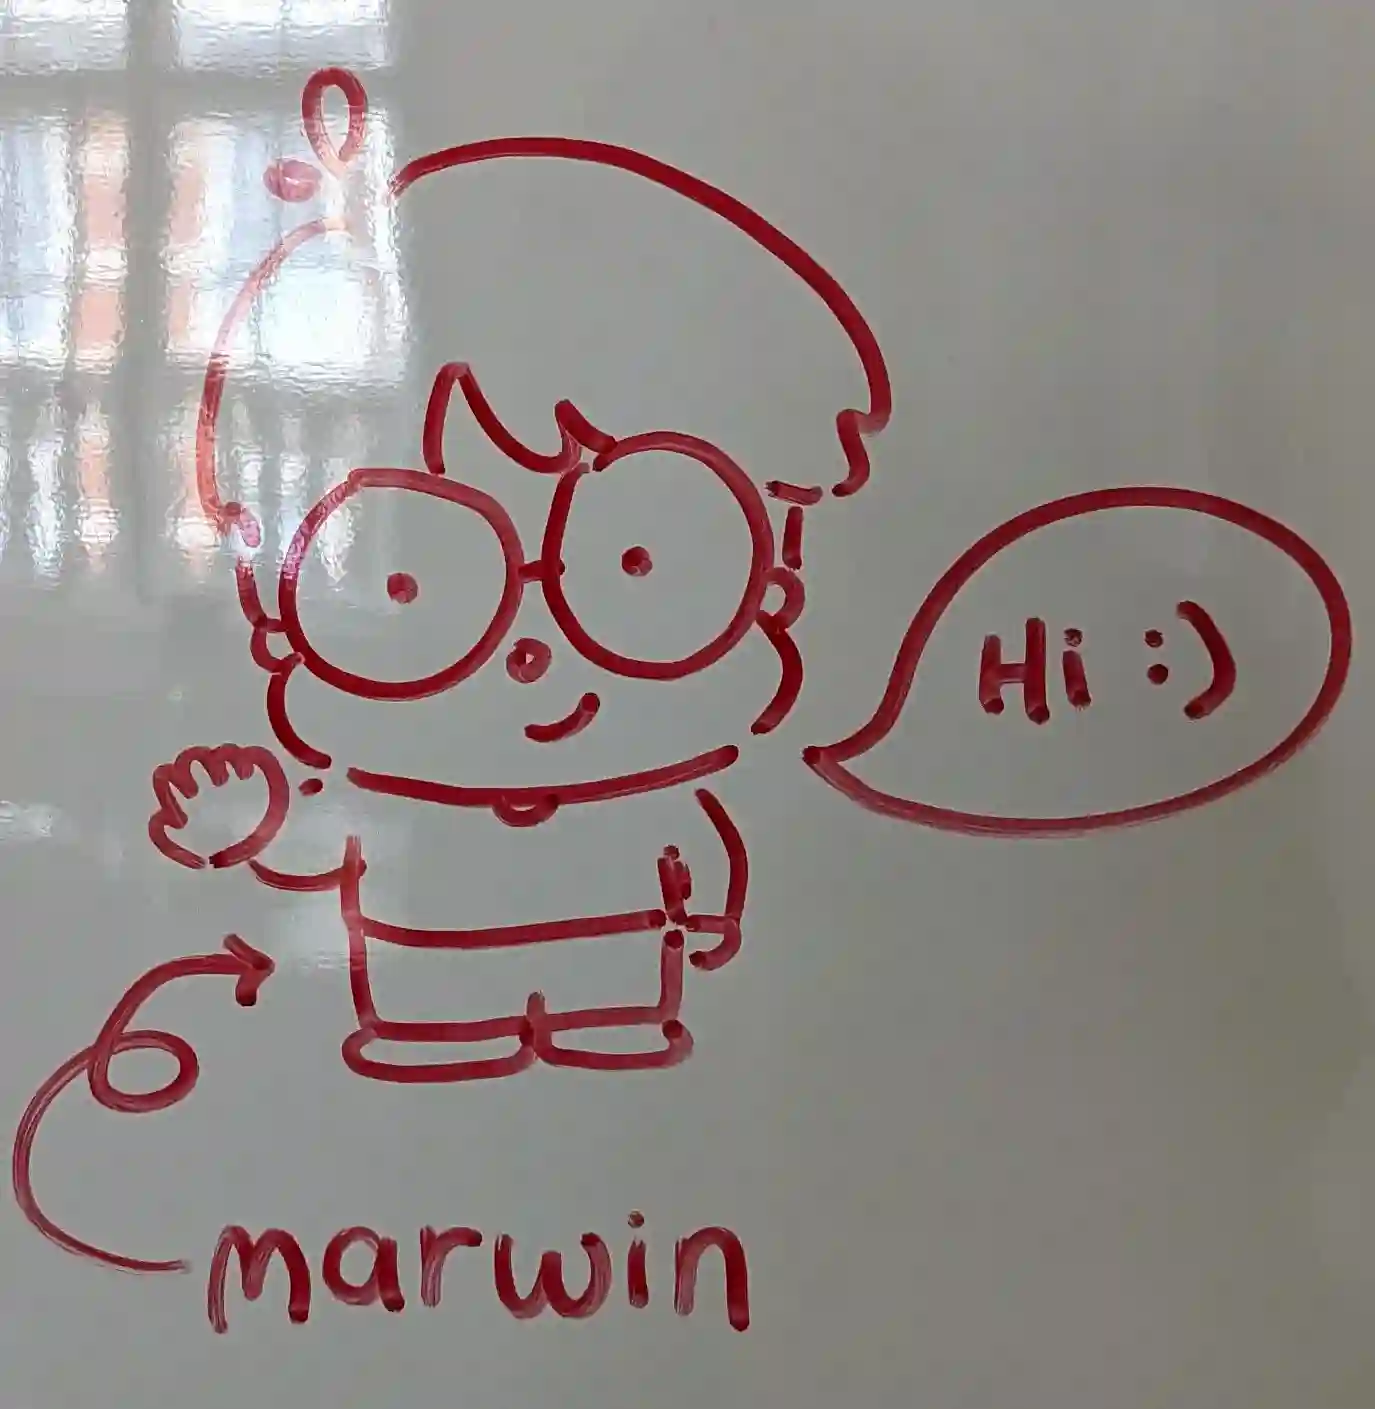 Hi :)
marwin